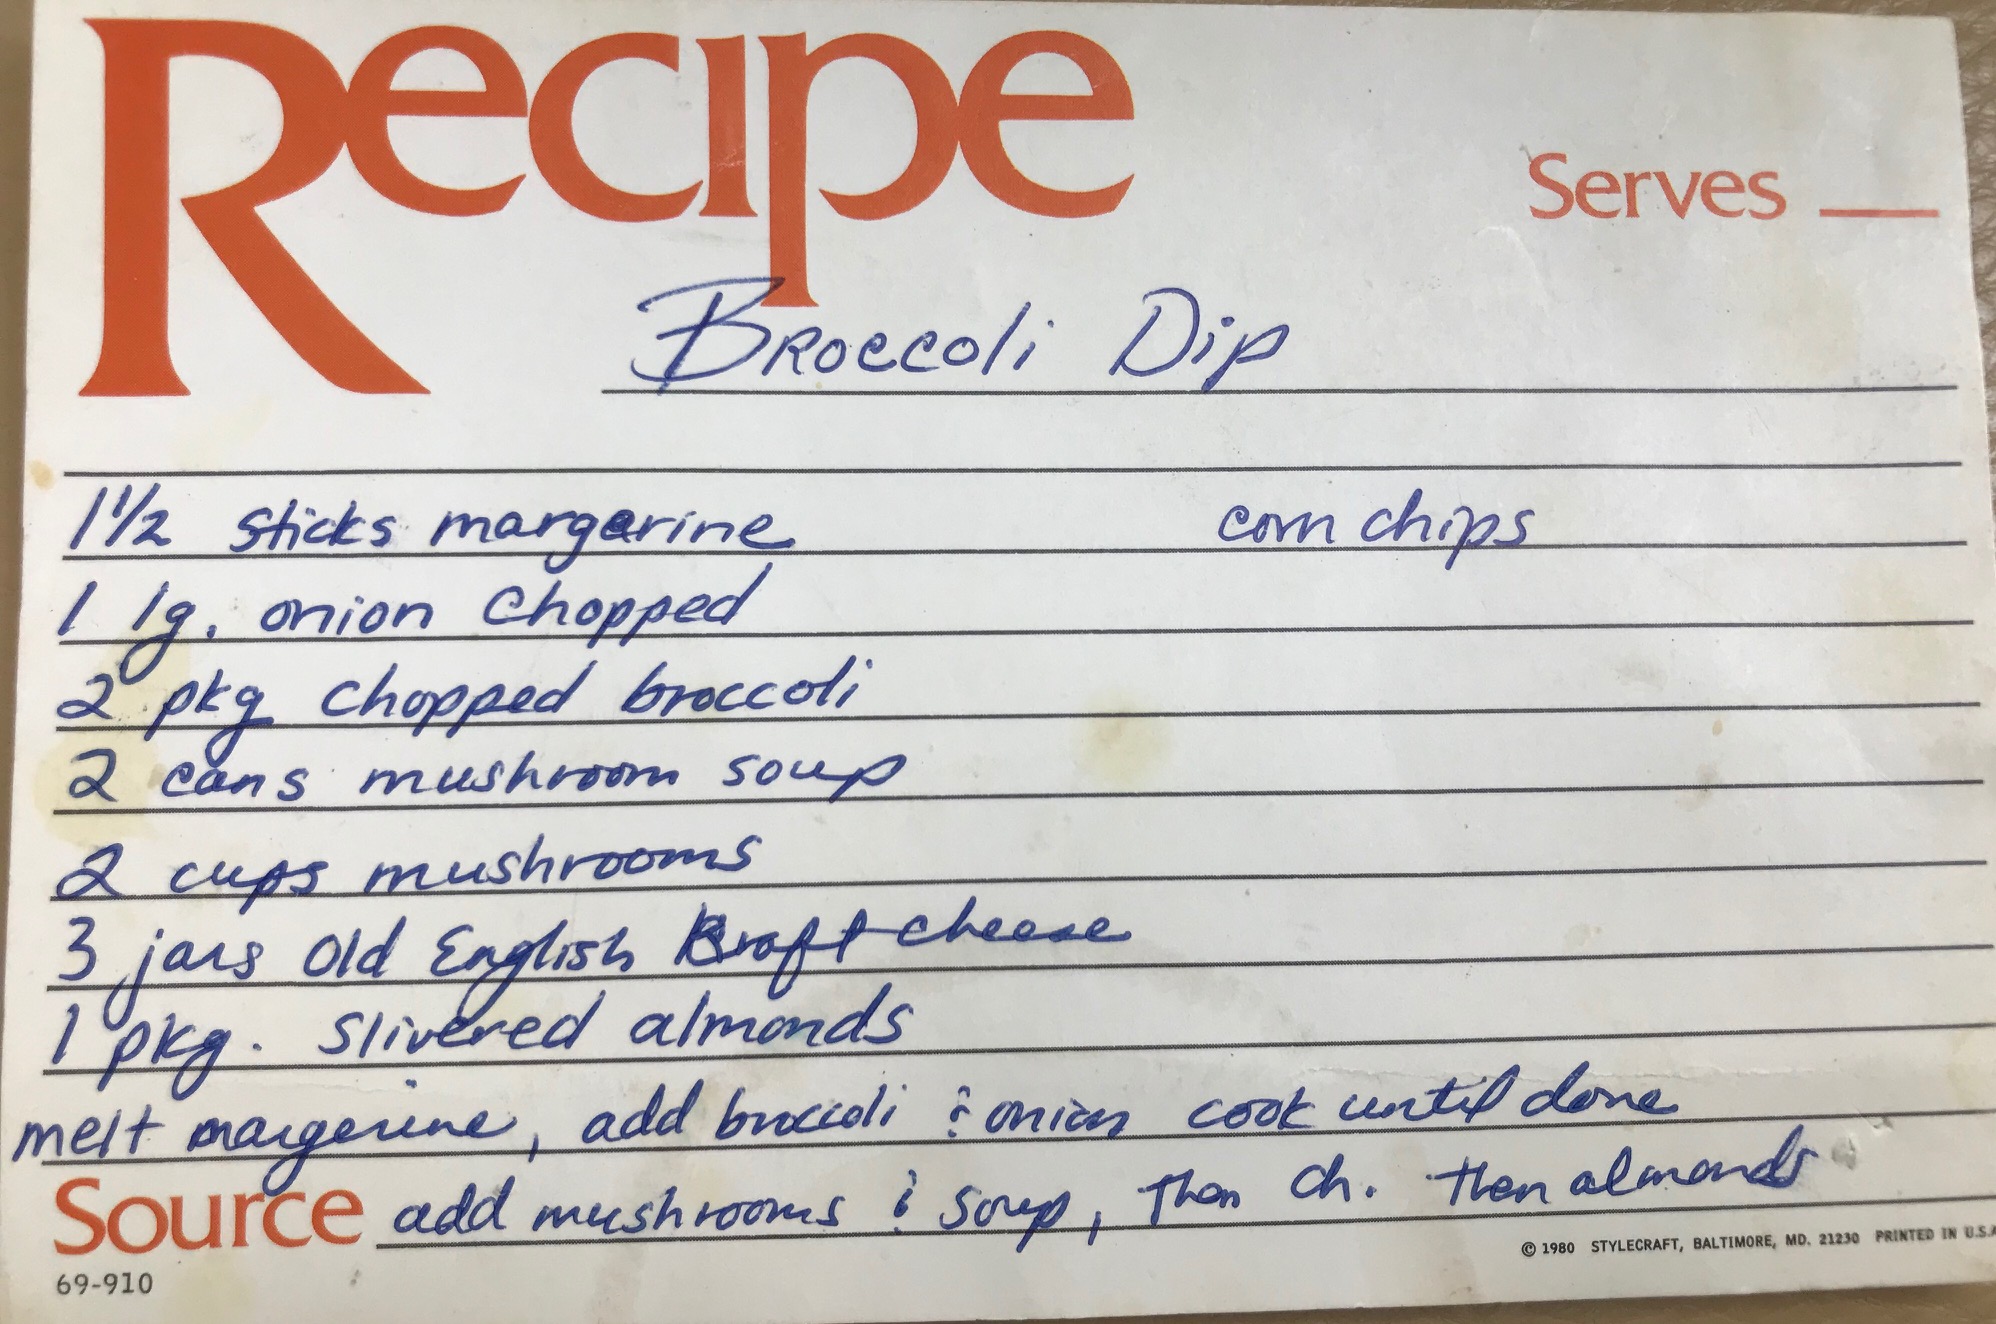 Recipe
Serves
Broccoli Dip
1 1/2 sticks margerine corn chips
1 lg. onion chopped
2 pkg chopped broccoli
2 cans mushroom soup
2 cups mushrooms
3 jars Old English Kraft cheese
1 pkg. slivered almonds
melt margerine, add broccoli & onion cook until done
Source add mushrooms & soup, then ch. then almonds
© 1980 STYLECRAFT, BALTIMORE, MD. 21230 PRINTED IN U.S.A
69-910